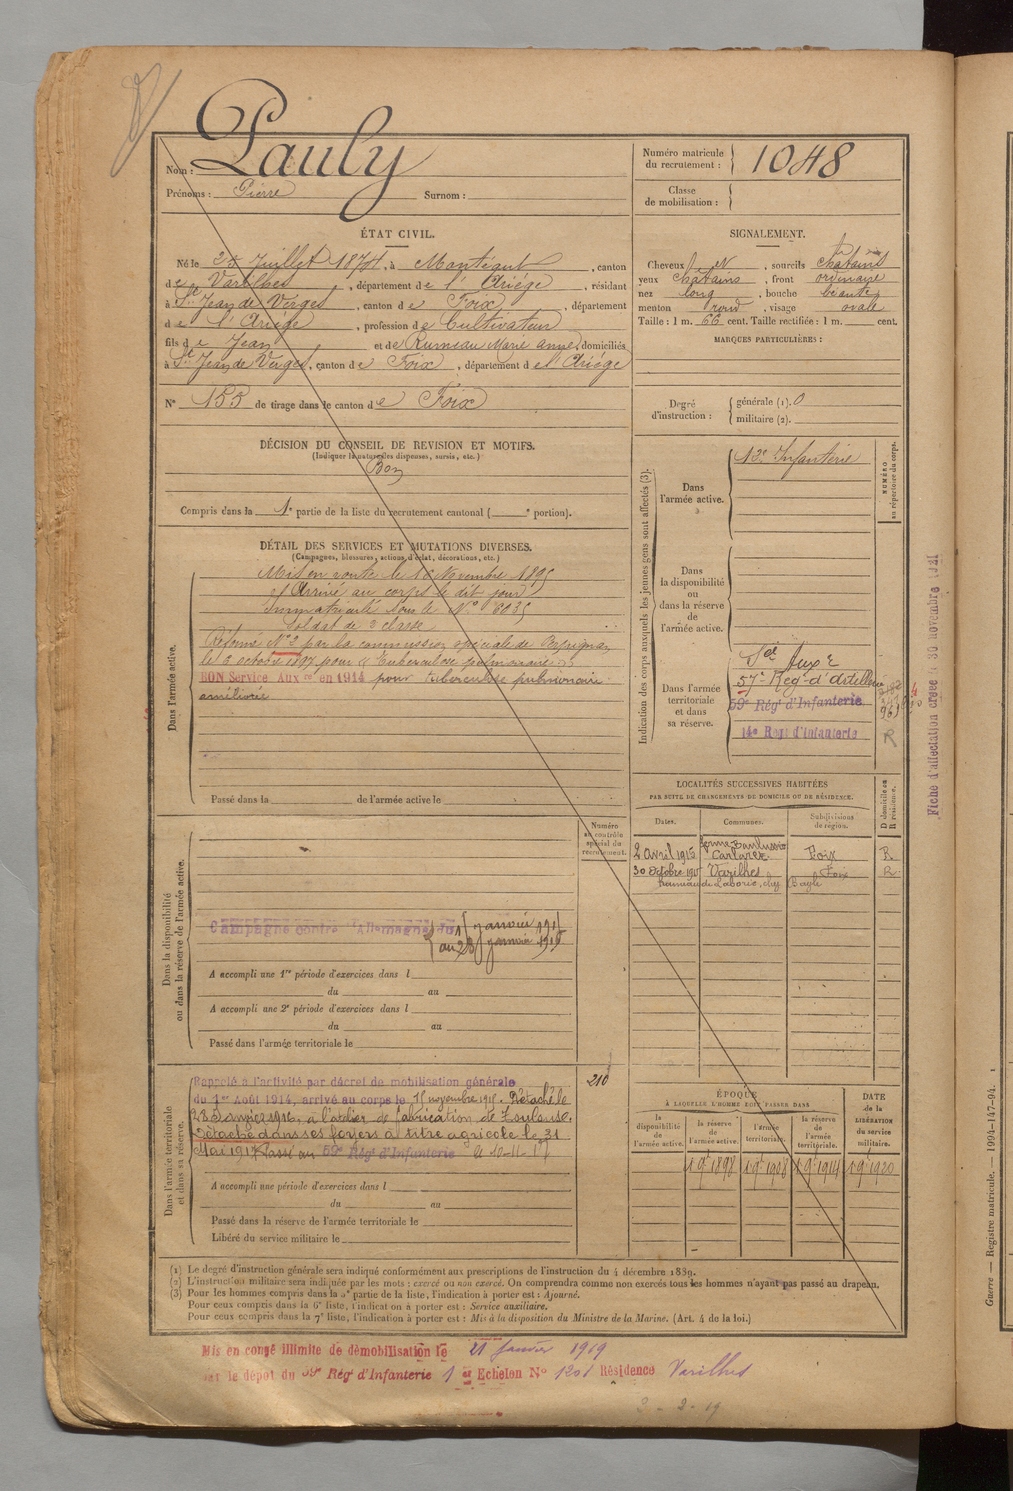 Nom : Pauly
Prénoms : Pierre Surnom :
Numéro matricule du recrutement : 1048
Classe de mobilisation :
ÉTAT CIVIL.
Né le Juillet 1874, à Montégut, canton
de Varilhes, département de l'Ariège, résidant
à St Jean de Verges, canton de Foix, département
de l'Ariège, profession de Cultivateur
fils de Jean et de Rumeau Marie Anne, domiciliés
à St Jean de Verges, canton de Foix, département de l'Ariége
N° 153 de tirage dans le canton de Foix
SIGNALEMENT.
Cheveux et, sourcils châtains
yeux châtains, front ordinaire
nez long, bouche
menton rond, visage ovale
Taille : 1 m. 66 cent. Taille rectifiée : 1 m. cent.
MARQUES PARTICULIÈRES :
Degré d'instruction : générale (1). 0
militaire (2).
DÉCISION DU CONSEIL DE REVISION ET MOTIFS.
(Indiquer la nature des dispenses, sursis, etc.)
Bon
Compris dans la 1e partie de la liste du recrutement cantonal ( e portion).
DÉTAIL DES SERVICES ET MUTATIONS DIVERSES.
(Campagnes, blessures, actions d'éclat, décorations, etc.)
Dans l'armée active.
Mis en route le 16 Novembre 1895
Arrivé au corps le dit jour
Immatriculé sous le N° 6035
Soldat de 2 classe
Réformé N° 2 par la commission spéciale de Perpignan
le octobre 1897 pour " Tuberculose pulmonaire "
BON Service Auxre en 1914 pour tuberculose pulmonaire
améliorée
Passé dans la de l'armée active le
Indication des corps auxquels les jeunes gens sont affectés (3).
NUMÉRO au répertoire du corps.
Dans l'armée active.
12e Infanterie
Dans la disponibilité ou dans la réserve de l'armée active.
Dans l'armée territoriale et dans sa réserve.
Sce Auxre
57e Rég. d'Artillerie
59e Rég' d'Infanterie
14e Régt d'Infanterie
R
Fiche d'affectation créée le 30 novembre 1921
LOCALITÉS SUCCESSIVES HABITÉES
PAR SUITE DE CHANGEMENTS DE DOMICILE OU DE RÉSIDENCE.
Dates. Communes. Subdivisions de région. D domicile ou R résidence.
2 Avril 1915 Carlaret Foix R
30 octobre 1915 Varilhes Foix R
Dans la disponibilité ou dans la réserve de l'armée active.
Numéro au contrôle spécial du recrutement.
Campagne contre l'Allemagne du
janvier
au 23 janvier
A accompli une 1re période d'exercices dans l
du au
A accompli une 2e période d'exercices dans l
du au
Passé dans l'armée territoriale le
Dans l'armée territoriale et dans sa réserve.
Rappelé à l'activité par décret de mobilisation générale 210
du 1er Août 1914, arrivé au corps le 15 novembre 1915. Détaché le
23 Janvier 1916, à l'atelier de fabrication de Toulouse.
Détaché dans ses foyers à titre agricole le 31
Mai 1917. Passé au 59e Rég' d'Infanterie le 10-11-17
A accompli une période d'exercices dans l
du au
Passé dans la réserve de l'armée territoriale le
Libéré du service militaire le
ÉPOQUE
À LAQUELLE L'HOMME DOIT PASSER DANS
la disponibilité de l'armée active. la réserve de l'armée active. l'armée territoriale. la réserve de l'armée territoriale. DATE de la LIBÉRATION du service militaire.
1 9e 1898 1 9e 1908 1 9e 1914 1 9e 1920
(1) Le degré d'instruction générale sera indiqué conformément aux prescriptions de l'instruction du 4 décembre 1889.
(2) L'instruction militaire sera indiquée par les mots : exercé ou non exercé. On comprendra comme non exercés tous les hommes n'ayant pas passé au drapeau.
(3) Pour les hommes compris dans la 2e partie de la liste, l'indication à porter est : Ajourné.
Pour ceux compris dans la 6e liste, l'indication à porter est : Service auxiliaire.
Pour ceux compris dans la 7e liste, l'indication à porter est : Mis à la disposition du Ministre de la Marine. (Art. 4 de la loi.)
Mis en congé illimité de démobilisation le 21 Janvier 1919
le dépôt du 59e Rég' d'Infanterie 1er Echelon N° 1201 Résidence Varilhes
2 - 2 - 19
Guerre — Registre matricule. — 1994-147-94. 1